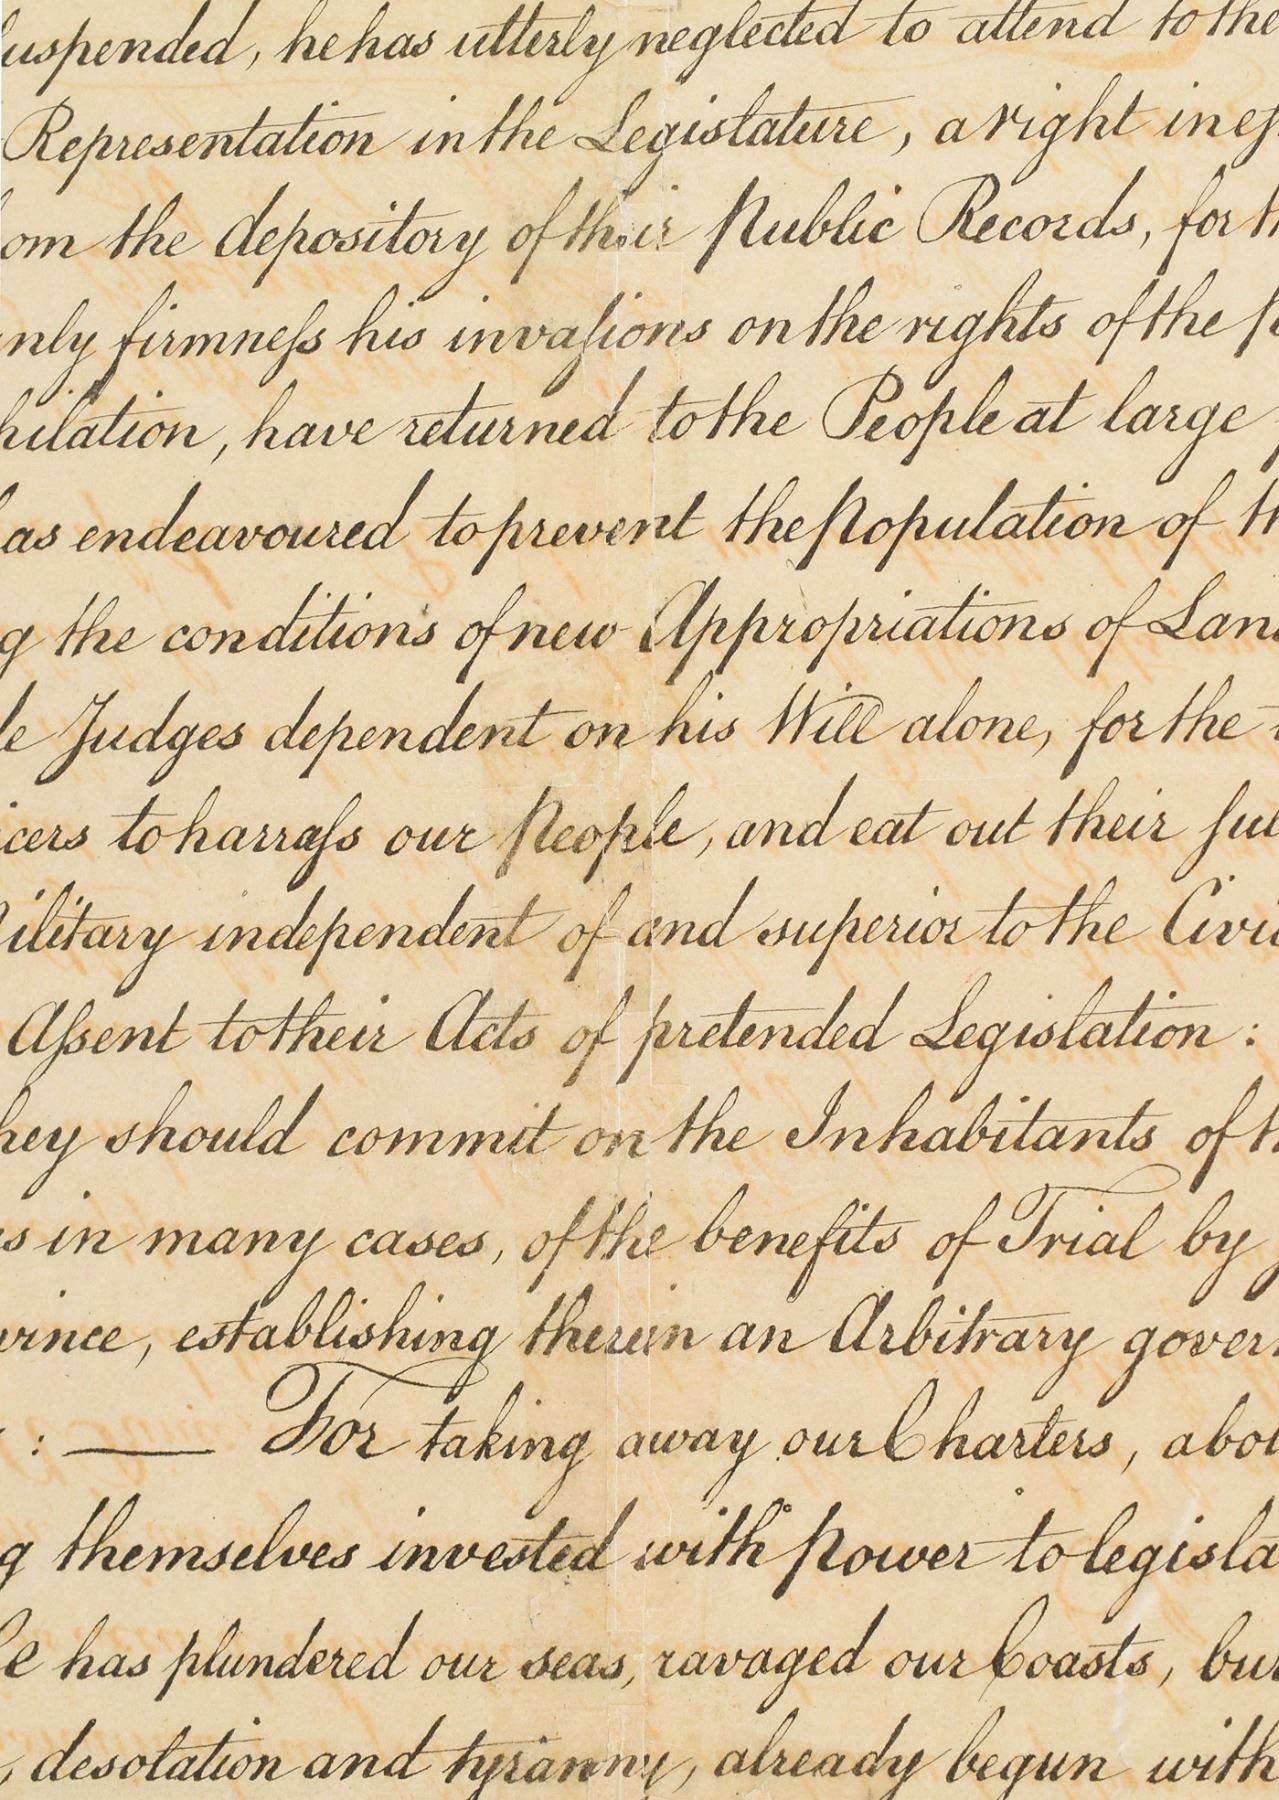 uspended, he has utterly neglected to attend to the
Representation in the Legislature, a right in es
om the depository of their Public Records, for th
nly firmneſs his invaſions on the rights of the p
hilation, have returned to the People at large
as endeavoured to prevent the Population of th
g the conditions of new Appropriations of Lan
le Judges dependent on his Will alone, for the
icers to harraſs our People, and eat out their ſu
ilitary independent of and superior to the Civi
Aſsent to their Acts of pretended Legislation :
hey should commit on the Inhabitants of th
s in many cases, of the benefits of Trial by
vince, establishing therein an Arbitrary gover
: —— For taking away our Charters, abo
g themselves invested with Power to legisla
e has plundered our seas, ravaged our Coasts, bu
, desolation and tyranny, already begun with